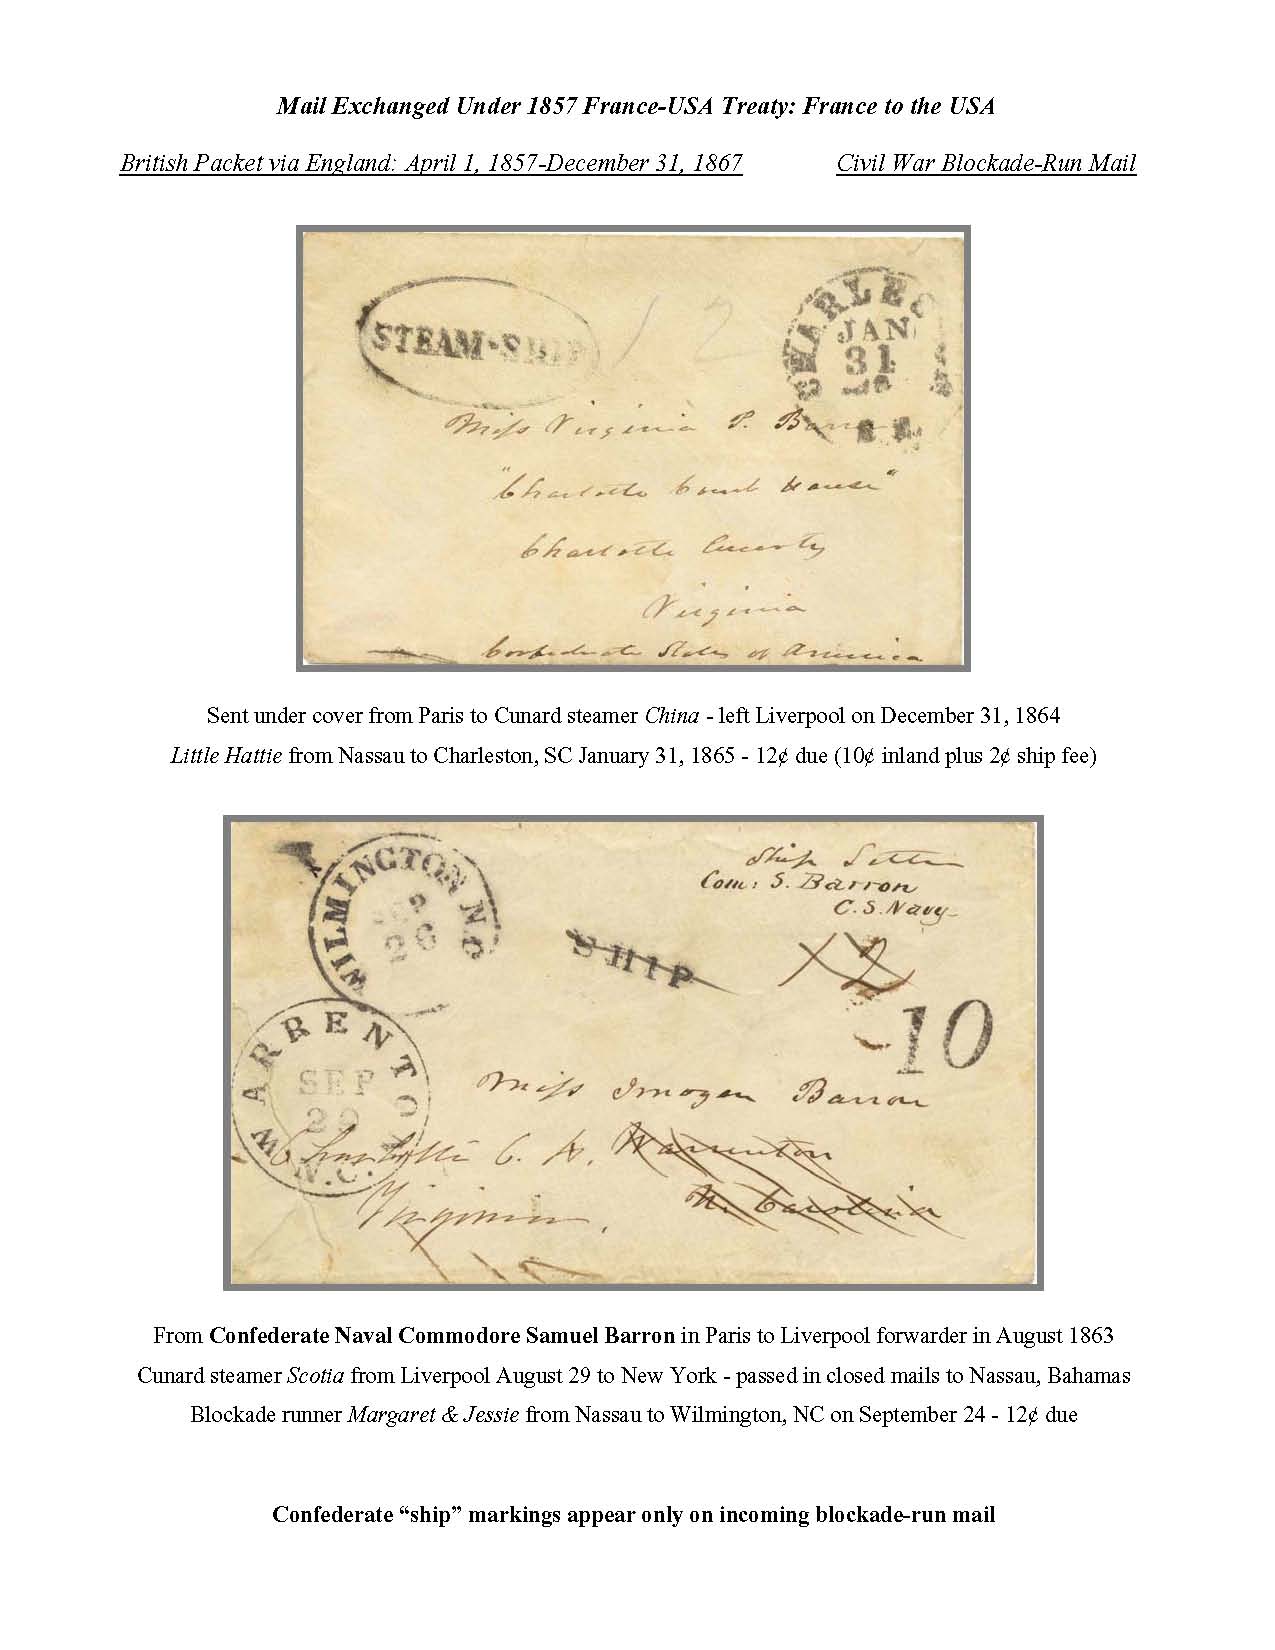 Mail Exchanged Under 1857 France-USA Treaty: France to the USA
British Packet via England: April 1, 1857-December 31, 1867
Civil War Blockade-Run Mail
STEAM-SHIP
12
JAN
31
Miss Virginia P.
"Charlotte Court House"
Charlotte County
Virginia
Confederate States of America
Sent under cover from Paris to Cunard steamer China - left Liverpool on December 31, 1864
Little Hattie from Nassau to Charleston, SC January 31, 1865 - 12¢ due (10¢ inland plus 2¢ ship fee)
WILMINGTON N.C
26
Ship Letter
Com: S. Barron
C. S. Navy
SHIP
12
10
WARRENTON
SEP
29
N.C.
Miss Imogen Barron
Charlotte C. H. Warrenton
Virginia. N. Carolina
From Confederate Naval Commodore Samuel Barron in Paris to Liverpool forwarder in August 1863
Cunard steamer Scotia from Liverpool August 29 to New York - passed in closed mails to Nassau, Bahamas
Blockade runner Margaret & Jessie from Nassau to Wilmington, NC on September 24 - 12¢ due
Confederate “ship” markings appear only on incoming blockade-run mail